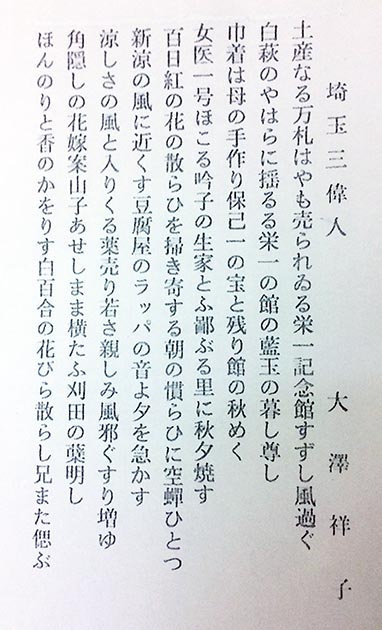 埼玉三偉人　大澤祥子
土産なる万札はやも売られゐる栄一記念館すずし風過ぐ
白萩のやはらに揺るる栄一の館の藍玉の暮し尊し
巾着は母の手作り保己一の宝と残り館の秋めく
女医一号ほこる吟子の生家とふ鄙ぶる里に秋夕焼す
百日紅の花の散らひを掃き寄する朝の慣らひに空蟬ひとつ
新涼の風に近くす豆腐屋のラッパの音よ夕を急かす
涼しさの風と入りくる薬売り若さ親しみ風邪ぐすり増ゆ
角隠しの花嫁案山子あせしまま横たふ刈田の蘖明し
ほんのりと香のかをりす白百合の花びら散らし兄また偲ぶ